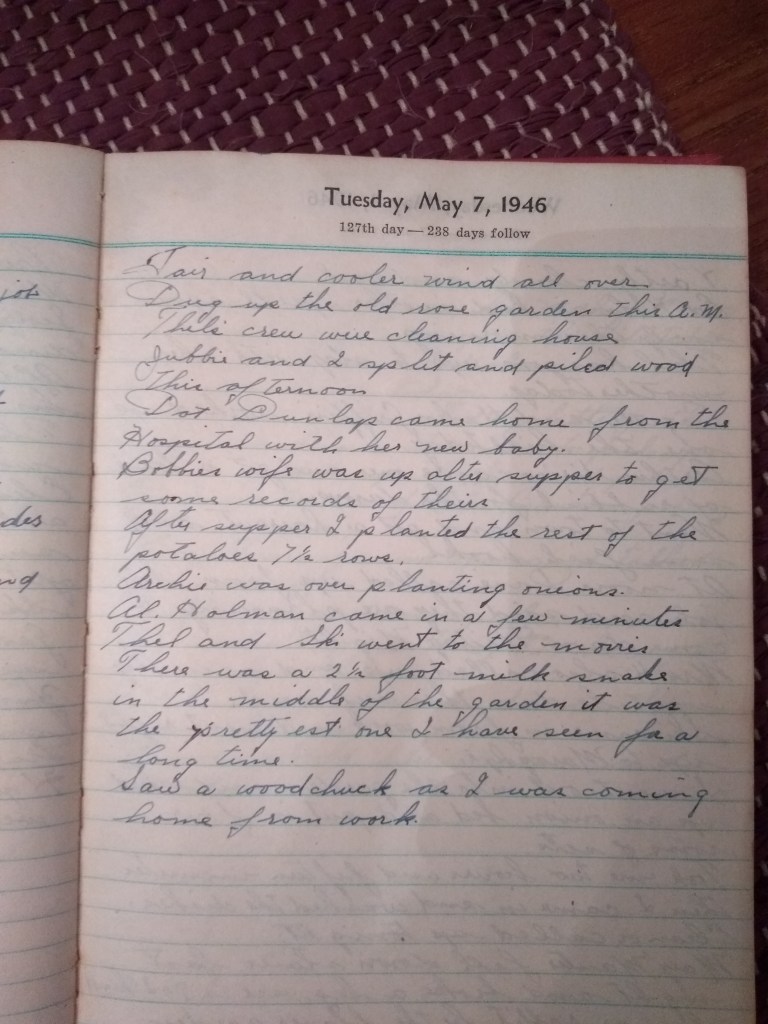 Tuesday, May 7, 1946
127th day — 238 days follow
Fair and cooler wind all over.
Dug up the old rose garden this A.M.
Thel's crew were cleaning house
Jubbie and I split and piled wood
this afternoon
Dot Dunlap came home from the
Hospital with her new baby.
Bobbies wife was up after supper to get
some records of theirs
After supper I planted the rest of the
potatoes 7½ rows.
Archie was over planting onions.
Al. Holman came in a few minutes
Thel and Ski went to the movis
There was a 2½ foot milk snake
in the middle of the garden it was
the prettyest one I have seen for a
long time.
Saw a woodchuck as I was coming
home from work.
job
des
nd